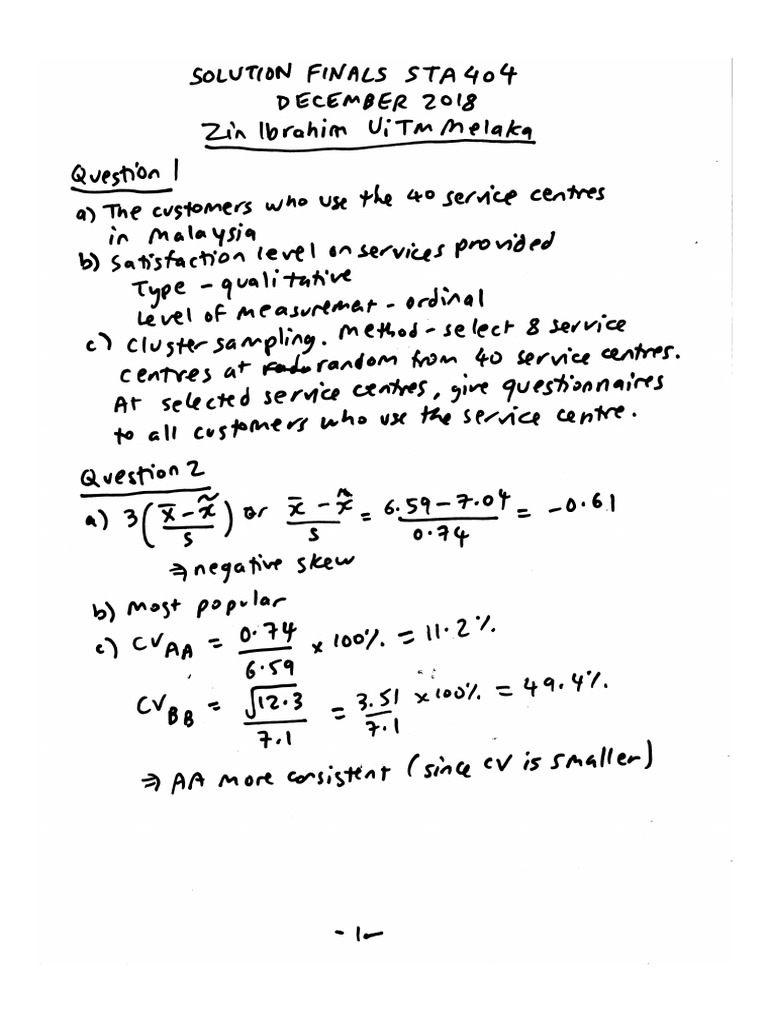 SOLUTION FINALS STA404
DECEMBER 2018
Zin Ibrahim UiTM Melaka
Question 1
a) The customers who use the 40 service centres
in Malaysia
b) Satisfaction level on services provided
Type - qualitative
Level of measuremat - ordinal
c) Cluster sampling. Method - select 8 service
centres at random from 40 service centres.
At selected service centres, give questionnaires
to all customers who use the service centre.
Question 2
a) 3(x̄ - x̃ / s) or x̄ - x̂ / s = 6.59 - 7.04 / 0.74 = -0.61
⇒ negative skew
b) Most popular
c) CV_AA = 0.74 / 6.59 × 100% = 11.2%
CV_BB = √12.3 / 7.1 = 3.51 / 7.1 × 100% = 49.4%
⇒ AA more consistent (since CV is smaller)
- 1 -